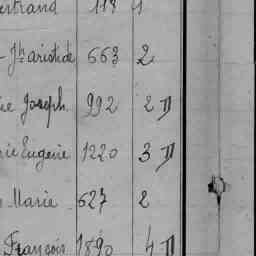 ertrand 113 1
- Jh aristide 663 2
ie Joseph 992 2 D
rie Eugenie 1220 3 D
Marie 627 2
François 1890 4 D